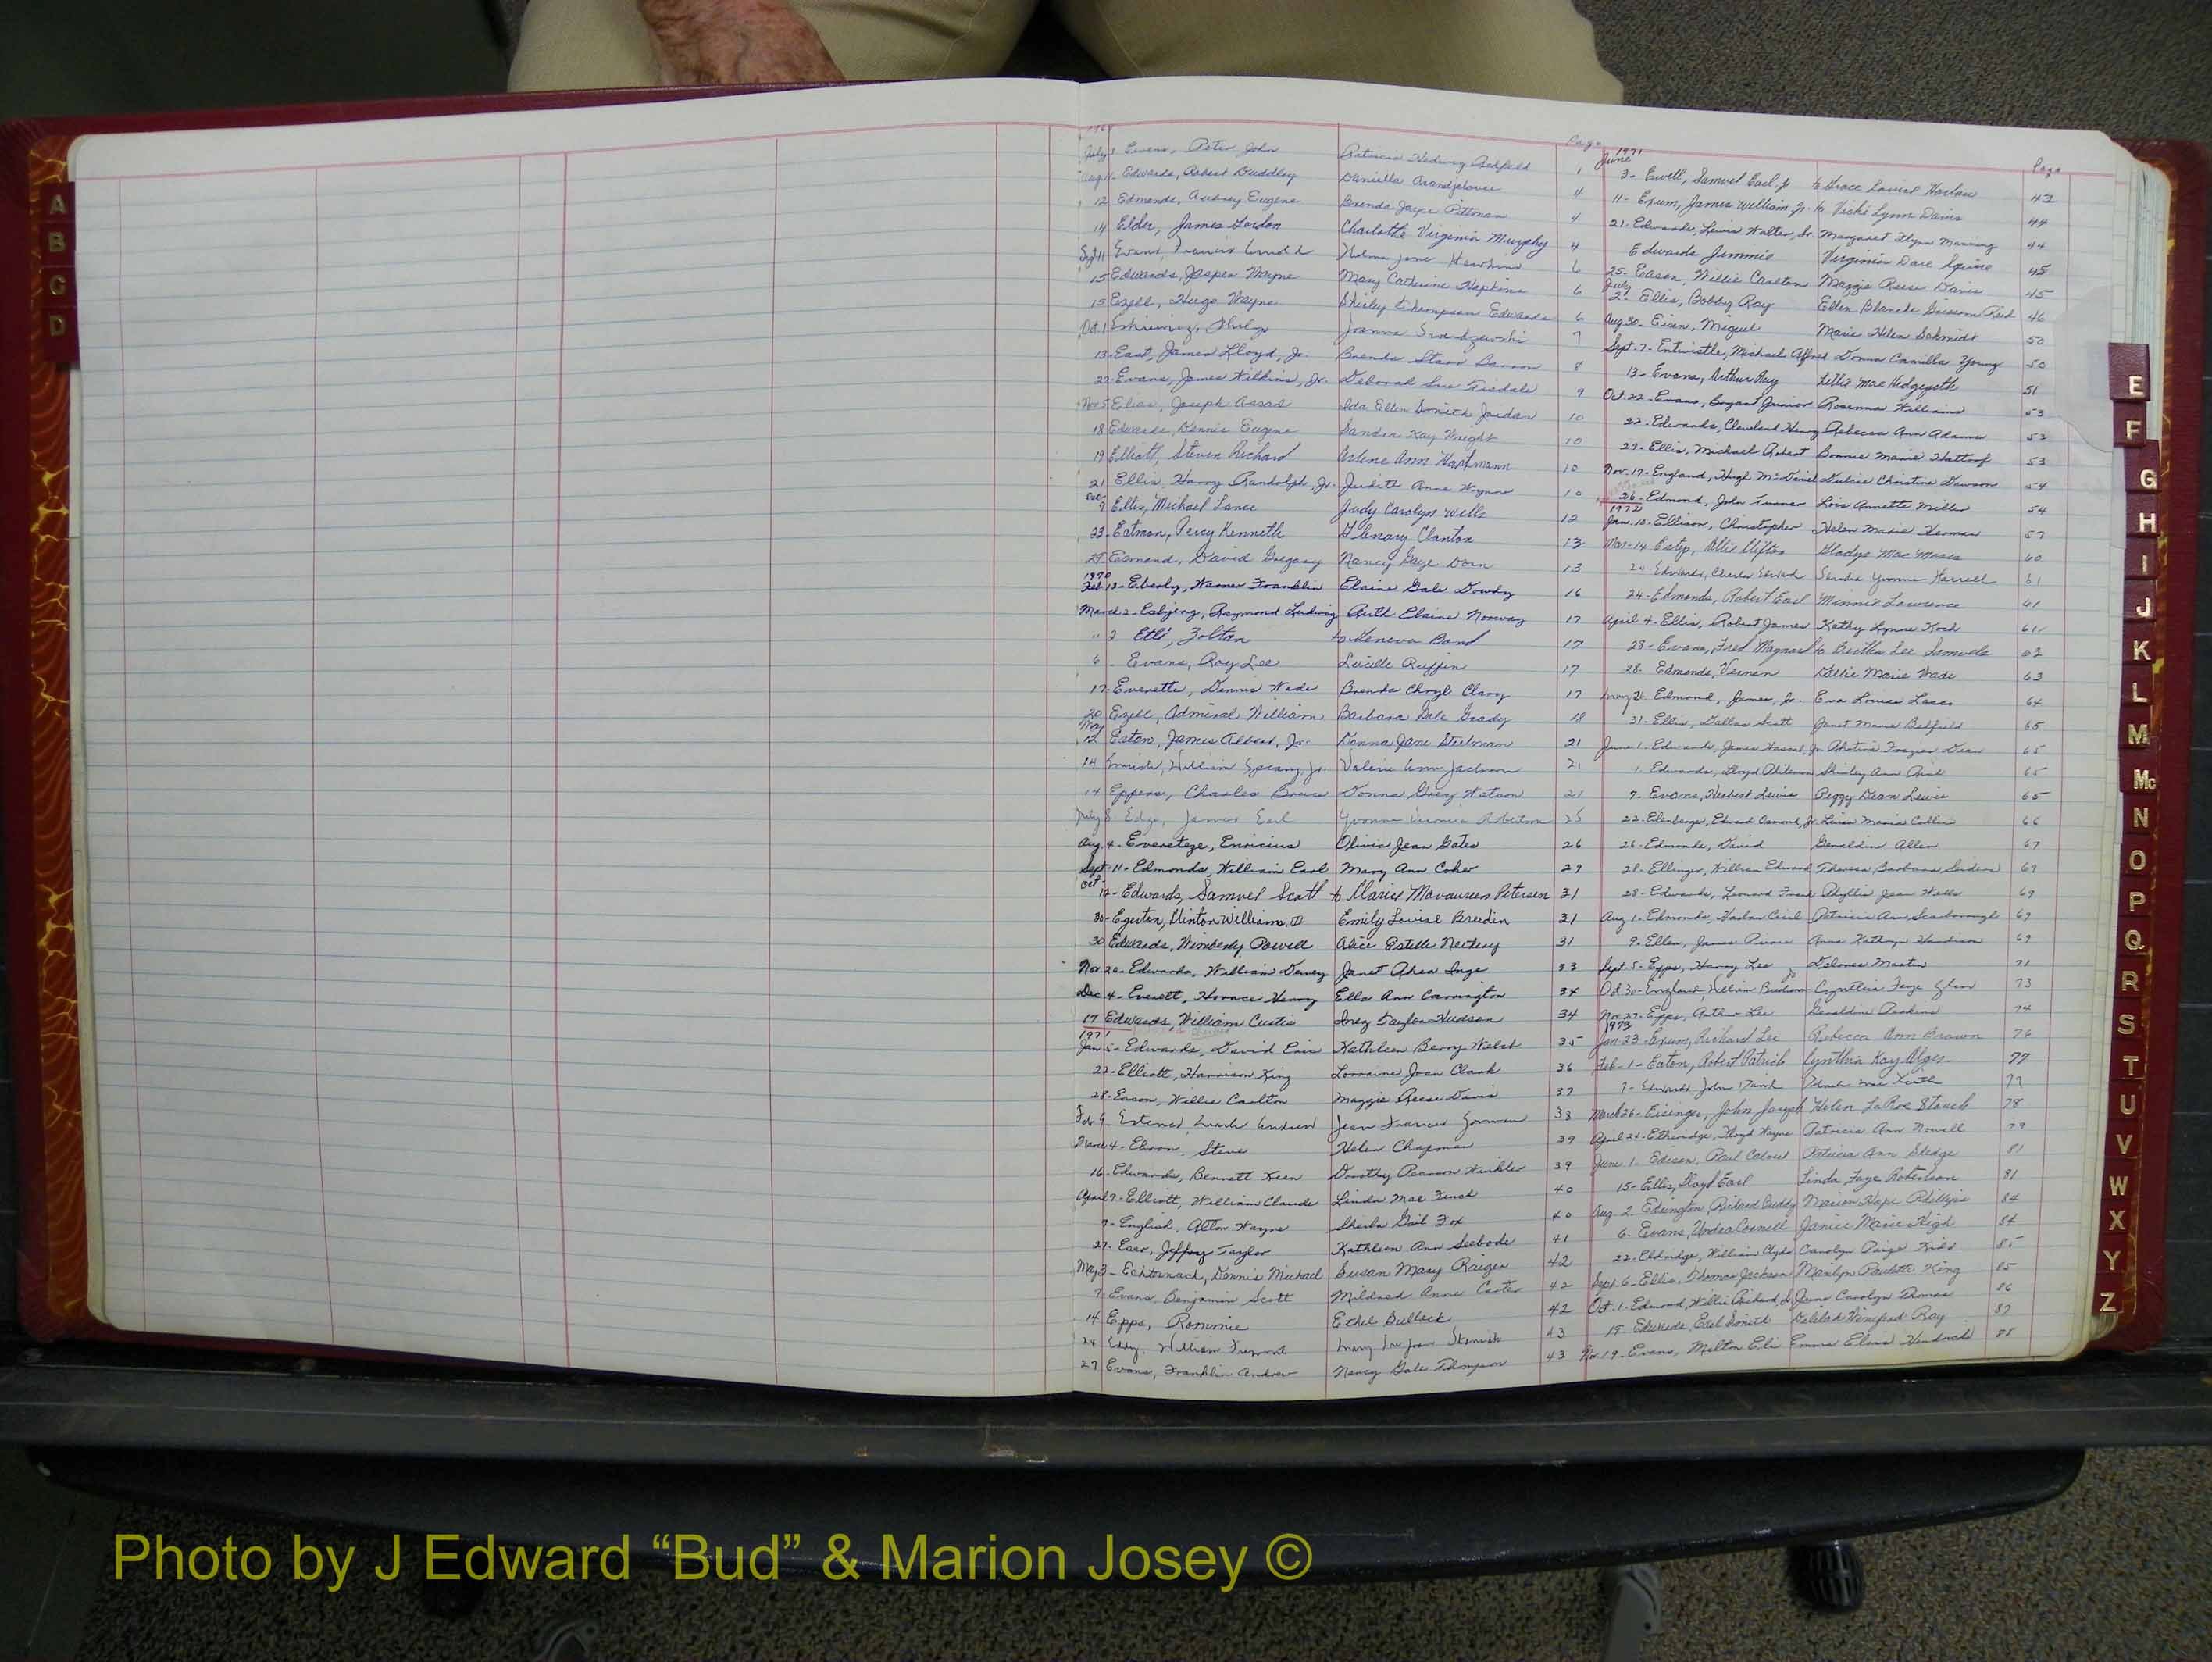 1969
Page
Peter John
Edwards, Robert Duddley Daniella 1
12 Edmonds, Aubrey Eugene Brenda Joyce Pittman 4
14 Elder, James Gordon Charlotte Virginia Murphy 4
15 Edwards, Jasper Wayne Mary Catherine Hopkins 6
15 Ezell, Hugo Wayne Shirley Thompson Edwards 6
13- East, James Lloyd, Jr. Brenda 8
27- Evans, James Wilkins, Jr. Deborah Sue Tisdale 9
Nov 5 Elias, Joseph Assad Ida Ellen Smith Jordan 10
18 Edwards, Dennis Eugene Sandra Kay Wright 10
19 Elliott, Steven Richard Arlene Ann Hartmann 10
21 Ellis, Harry Randolph, Jr. Judith Anne Wynne 10
Dec 9 Ellis, Michael Lance Judy Carolyn Wells 12
23- Eatmon, Percy Kenneth Glenary Clanton 13
29 Edmond, David Gregory Nancy Gaye Dorn 13
1970
Feb 13- Eberly, Warner Franklin Elaine Gale Dowdy 16
March 2- Esbjerg, Raymond Ludwig Ruth Elaine Norway 17
" 2 Etli, Zoltan to Geneva Band 17
6 Evans, Roy Lee Lucille Ruffin 17
17- Everette, Dennis Wade Brenda Cheryl Clary 17
20 Ezell, Admiral William Barbara Dale Grady 18
May 12 Eaton, James Albert, Jr. Donna Jane Steelman 21
14 William Speany, Jr. Valerie Ann Jackson 21
14 Eppers, Charles Bruce Donna Gray Watson 21
July 8 Edge, James Earl Yvonne Veronica Robertson 25
Aug. 4- Everetteze, Enricius Olivia Jean Gates 26
Sept- 11- Edmonds, William Earl Mary Ann Coker 29
Oct- 12- Edwards, Samuel Scott to Clarice Mavoureen Petersen 31
30- Egerton, Clinton William, III Emily Louise Breedin 31
30 Edwards, Wimberly Powell Alice Estelle Neckey 31
Nov 20- Edwards, William Dewey Janet Rhea Inge 33
Dec 4- Everett, Horace Henry Ella Ann Carrington 34
17 Edwards, William Curtis Inez Taylor Hudson 34
1971
Jan 5- Edwards, David Eric Kathleen Berry Welch 35
22- Elliott, Harrison King Lorraine Joan Clark 36
28- Eason, Willie Carlton Maggie Reese Davis 37
Jean Frances Gorman 38
March 4- Elvon, Steve Helen Chapman 39
16- Edwards, Bennett Keen Dorothy Pearson Winkler 39
April 9- Elliott, William Claude Linda Mae Finch 40
9- English, Alton Wayne Sheila Gail Fox 40
27- Eser, Jeffrey Taylor Kathleen Ann Seebode 41
May 3- Echternach, Dennis Michael Susan Mary Raiger 42
7- Evans, Benjamin Scott Mildred Anne Carter 42
14 Epps, Rommie Ethel Bullock 42
24 Eddy, William Fremont Mary Lou Joan 43
27 Evans, Franklin Andrew Nancy Gale Thompson 43
1971
Page
June 3- Ewell, Samuel Earl, Jr to Grace Laurel Harlow 43
11- Exum, James William, Jr. to Vicki Lynn Davis 44
21. Edwards, Lewis Walter, Sr. Margaret Flynn Manning 44
Edwards Jimmie Virginia Dare Squire 45
25- Eason, Willie Carlton Maggie Reese Davis 45
July 2- Ellis, Bobby Ray Ellen Blanche Grissom Reid 46
Aug 30- Eisen, Miguel Marie Helen Schmidt 50
Sept. 7- Entwistle, Michael Alfred Donna Camilla Young 50
13- Evans, Arthur Ray Lillie Mae Hedgepeth 51
Oct. 22- Evans, Bryant Junior Rosenna Williams 53
22- Edwards, Cleveland Henry Rebecca Ann Adams 53
29- Ellis, Michael Robert Bonnie Marie Hattorf 53
Nov. 19- England, Hugh McDaniel Dulcie Christine Dawson 54
26- Edmond, John Turner Lois Annette Miller 54
1972
Jan. 10- Ellison, Christopher Helen Marie Herman 57
Mar-14 Estep, Ollie Clifton Gladys Mae Moses 60
24- Edwards, Charles Edward Sandra Yvonne Harrell 61
24- Edmonds, Robert Earl Minnie Lawrence 61
April 4- Ellis, Robert James Kathy Lynne Koch 61
28- Evans, Fred Maynard to Bertha Lee Samuels 62
28- Edmonds, Vernon Lallie Marie Wade 63
May 26. Edmond, James, Jr. Eva Louise Lasco 64
31- Ellis, Dallas Scott Janet Marie Belfield 65
June 1- Edwards, James Hascal, Jr. Frazier Dean 65
1. Edwards, Lloyd Philemon Shirley Ann 65
7- Evans, Herbert Lewis Peggy Dean Lewis 65
22- Elenberger, Edward Osmond, Jr. Luisa Maria Collins 66
26- Edmonds, David Geraldine Allen 67
28- Ellinger, William Edward Theresa Barbara Sanders 69
28- Edwards, Leonard Frank Phyllis Jean Wells 69
Aug 1- Edmonds, Harlan Cecil Patricia Ann Scarborough 69
9- Ellen, James Pierce Anna Kathryn Hardison 69
Sept. 5- Epps, Harry Lee to Delores Martin 71
Oct 30- England, William Cynthia Faye 73
Nov. 27- Epps, Arthur Lee Geraldine Perkins 74
1973
Jan 23- Exum, Richard Lee Rebecca Ann Brown 76
Feb- 1- Eaton, Robert Patrick Cynthia Kay Alges 77
7- Edwards John 77
March 26- Eisinger, John Joseph Helen LaRoe Staub 78
April 24- Etheridge, Floyd Wayne Patricia Ann Nowell 79
June 1- Edison, Paul Calvert Patricia Ann Sledge 81
15- Ellis, Lloyd Earl Linda Faye Robertson 81
Aug. 2 Edrington, Richard Buddy Marion Hope Phillips 84
6- Evans, Undra Cornell Janice Marie High 84
22- Eldridge, William Clyde Carolyn Paige Kidd 85
Sept. 6- Ellis, Thomas Jackson Marilyn Paulette King 85
Oct. 1- Edmond, Willie Richard, Jr. June Carolyn Thomas 86
19- Edwards, Earl Smith Delilah Winifred Ray 87
Nov. 19- Evans, Milton Eli Emma Elma Hendricks 88
A
B
C
D
E
F
G
H
I
J
K
L
M
Mc
N
O
P
Q
R
S
T
U
V
W
X
Y
Z
Photo by J Edward “Bud” & Marion Josey ©